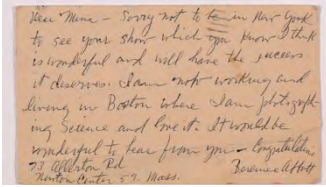 Dear Mina - Sorry not to be in New York
to see your show which you know I think
is wonderful and will have the success
it deserves. I am now working and
living in Boston where I am photograph-
ing Science and love it. It would be
wonderful to hear from you - Congratulations
73 Allerton Rd. Berenice Abbott
Newton Center 59. Mass.